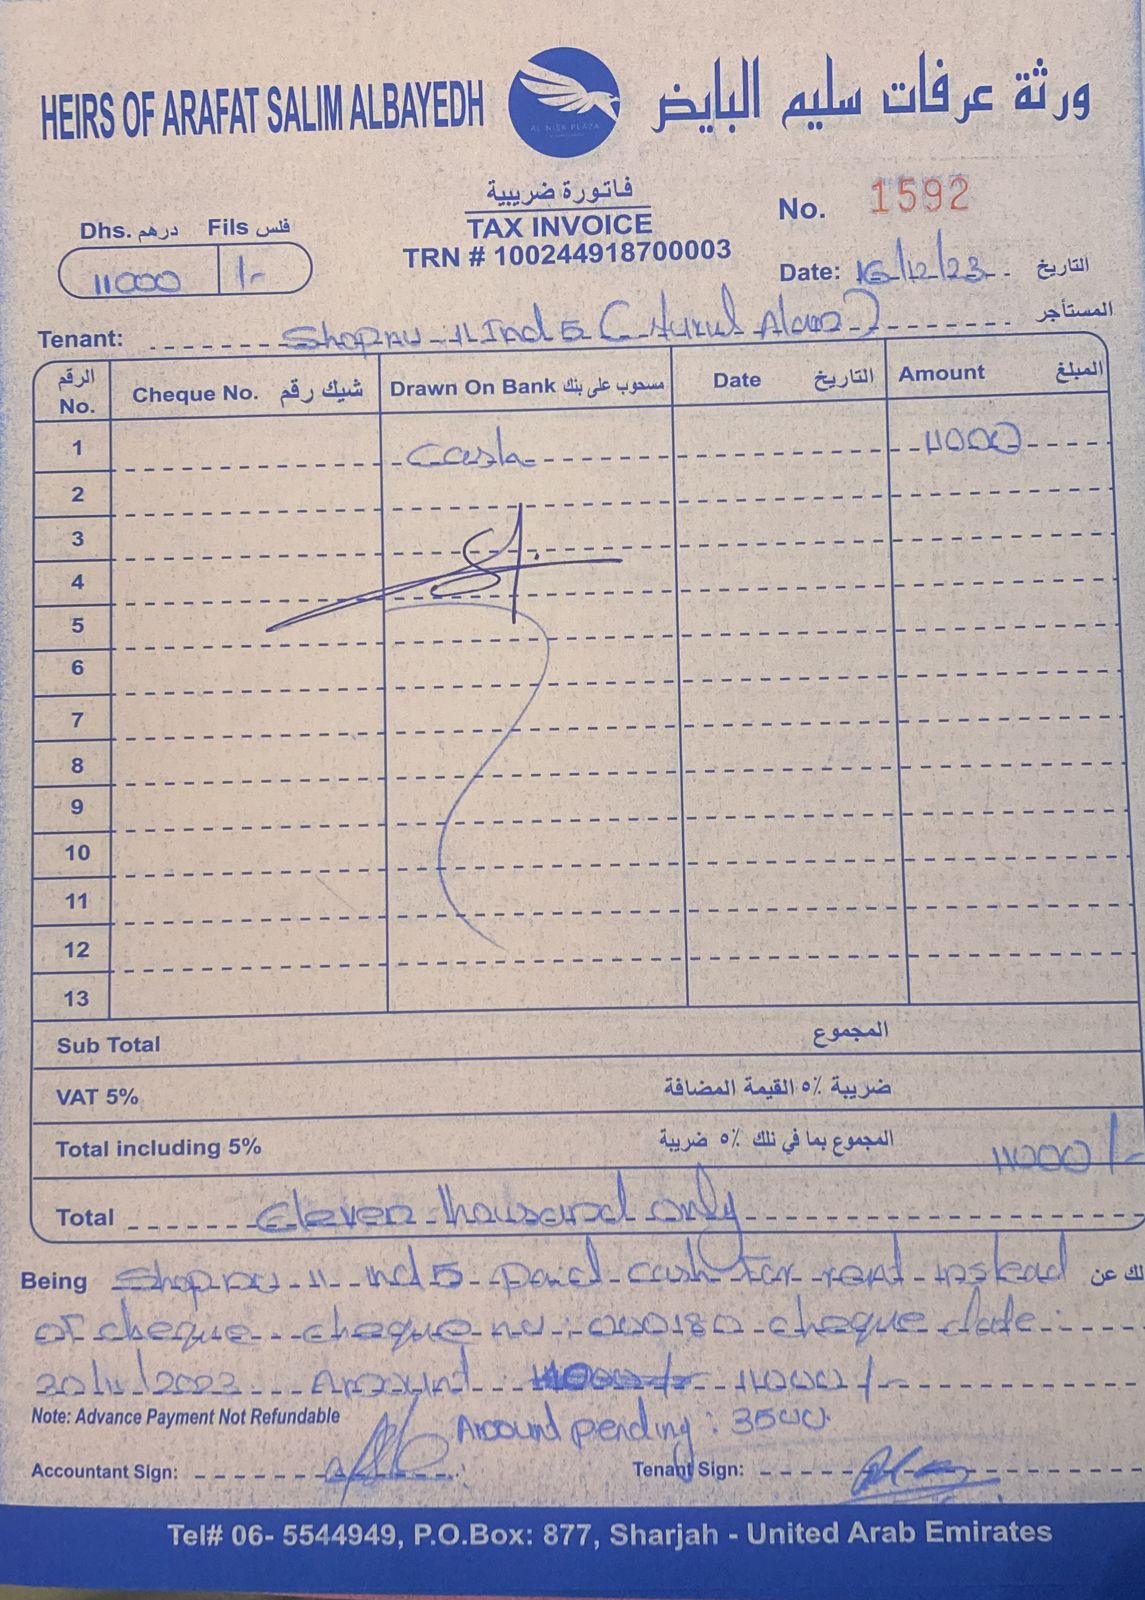 HEIRS OF ARAFAT SALIM ALBAYEDH
ورثة عرفات سليم البايض
AL NISR PLAZA
فاتورة ضريبية
TAX INVOICE
TRN # 100244918700003
No. 1592
Dhs. درهم Fils فلس
11000 /-
Date: 16/12/23 التاريخ
Tenant: Shop no 11 Ind 5 ( Alam) المستأجر
الرقم No. Cheque No. شيك رقم Drawn On Bank مسحوب على بنك Date التاريخ Amount المبلغ
1 Cash 11000
2
3
4
5
6
7
8
9
10
11
12
13
Sub Total المجموع
VAT 5% ضريبة ٪٥ القيمة المضافة
Total including 5% المجموع بما في تلك ٪٥ ضريبة 11000/-
Total Eleven thousand only
Being Shop no 11 ind 5 paid cash for rent instead لك عن
of cheque cheque no: 000180 cheque date:
30/11/2023 Amount 11000/-
Note: Advance Payment Not Refundable
Amount pending: 3500
Accountant Sign: Tenant Sign:
Tel# 06- 5544949, P.O.Box: 877, Sharjah - United Arab Emirates